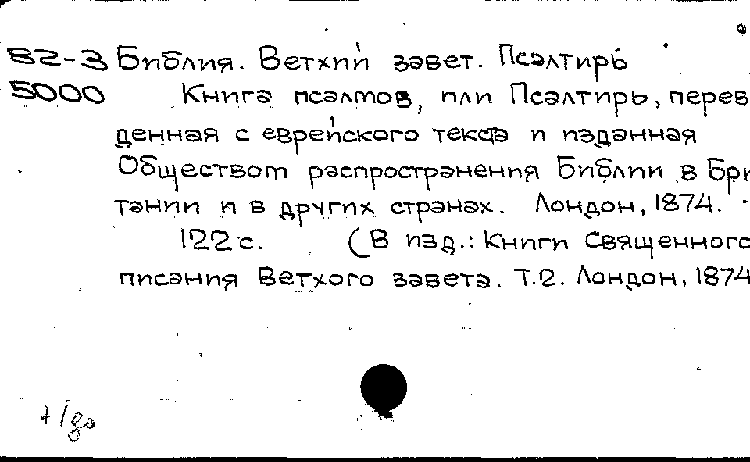 82-3 Библия. Ветхий завет. Псалтирь
5000 Книга псалмов, или Псалтирь, перев
денная с еврейского текста и изданная
Обществом распространения Библии в Бри
тании и в других странах. Лондон, 1874.
122 с. (В изд.: Книги Священного
писания Ветхого завета. Т.2. Лондон, 1874